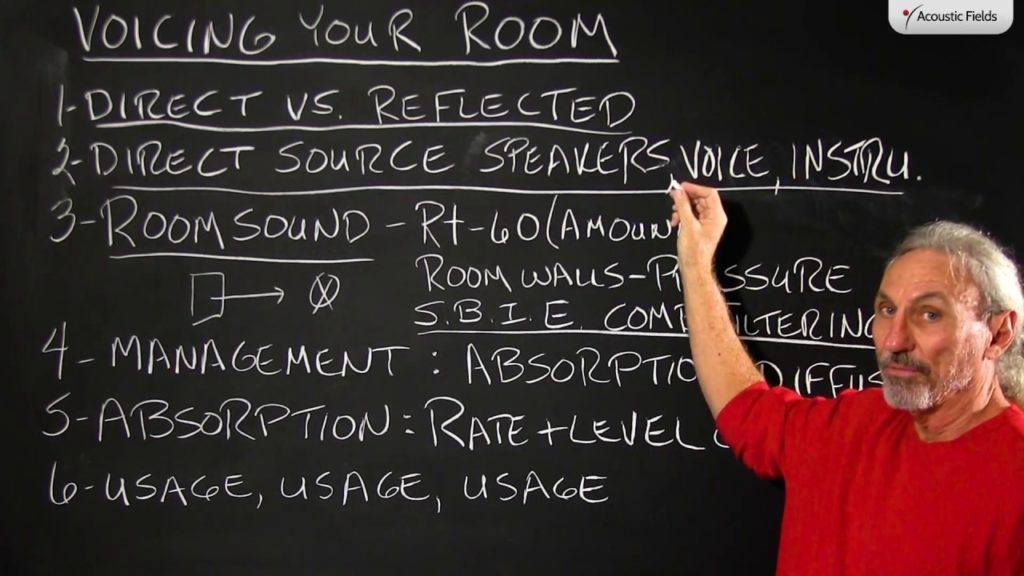 Acoustic Fields
VOICING YOUR ROOM
1-DIRECT VS. REFLECTED
2-DIRECT SOURCE SPEAKERS, VOICE, INSTRU.
3-ROOM SOUND - Rt-60 (AMOUN
ROOM WALLS-PRESSURE
S.B.I.E. COMB FILTERING
4-MANAGEMENT: ABSORPTIO DIFFUS
5-ABSORPTION: RATE + LEVEL
6-USAGE, USAGE, USAGE